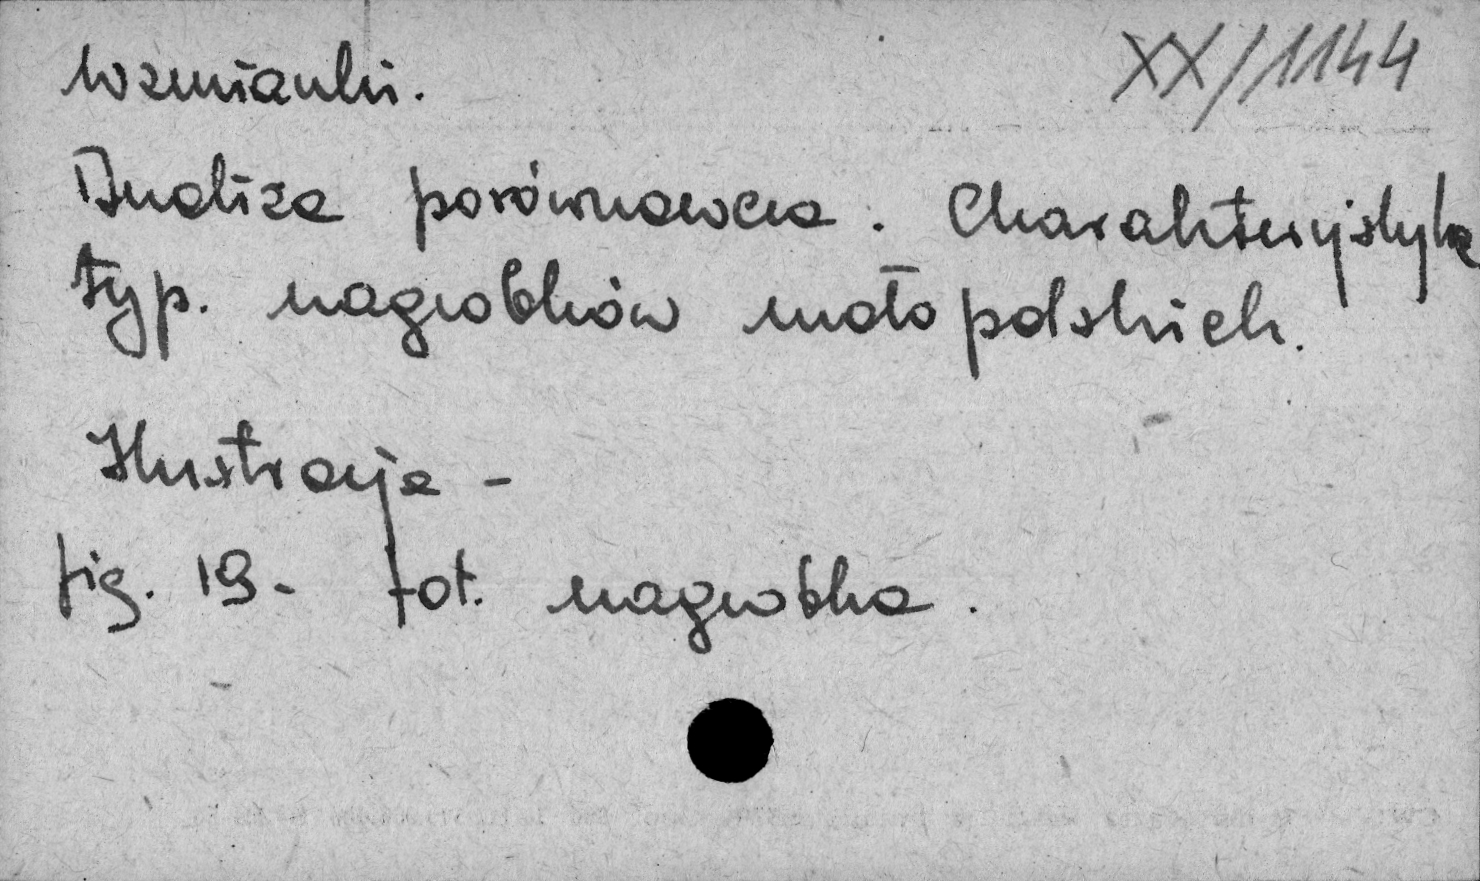 XX/1144
wzmianki.
Analiza porównawcza. Charakterystyka
typ. nagrobków małopolskich.
Ilustracje -
fig. 19 - fot. nagrobka.